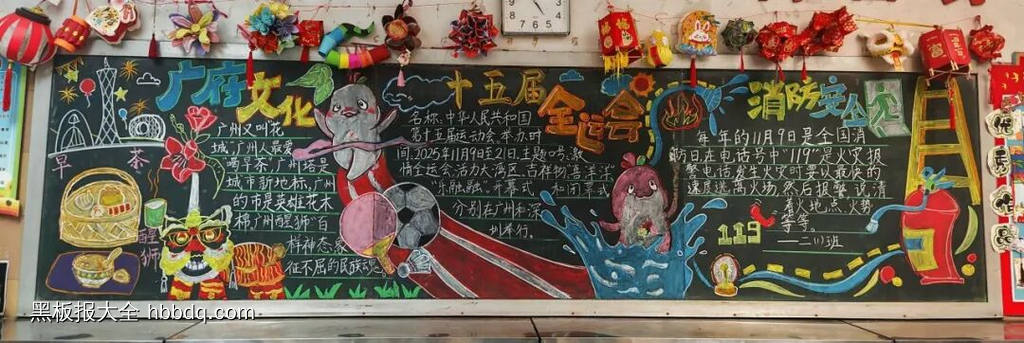 广府文化
广州又叫花
城,广州人最爱
喝早茶,广州塔是
城市新地标,广州
的市是英雄花木
棉,广州醒狮"百
折神态象
征不屈的民族动态
早茶
醒狮
十五届
全运会
名称:中华人民共和国
第十五届运动会,举办时
间,2025年11月9日至21日,主题口号,激
情全运会,活力大湾区,吉祥物,喜洋洋
乐融融,开幕式和闭幕式
分别在广州和深
圳举行。
消防安全
每年的11月9日是全国消
防日,在电话号中"119"是火灾报
警电话,发生火灾时要以最快的
速度逃离火场,然后报警,说清
着火地点,火势
等等。
119
——二(1)班
黑板报大全 hbbdq.com